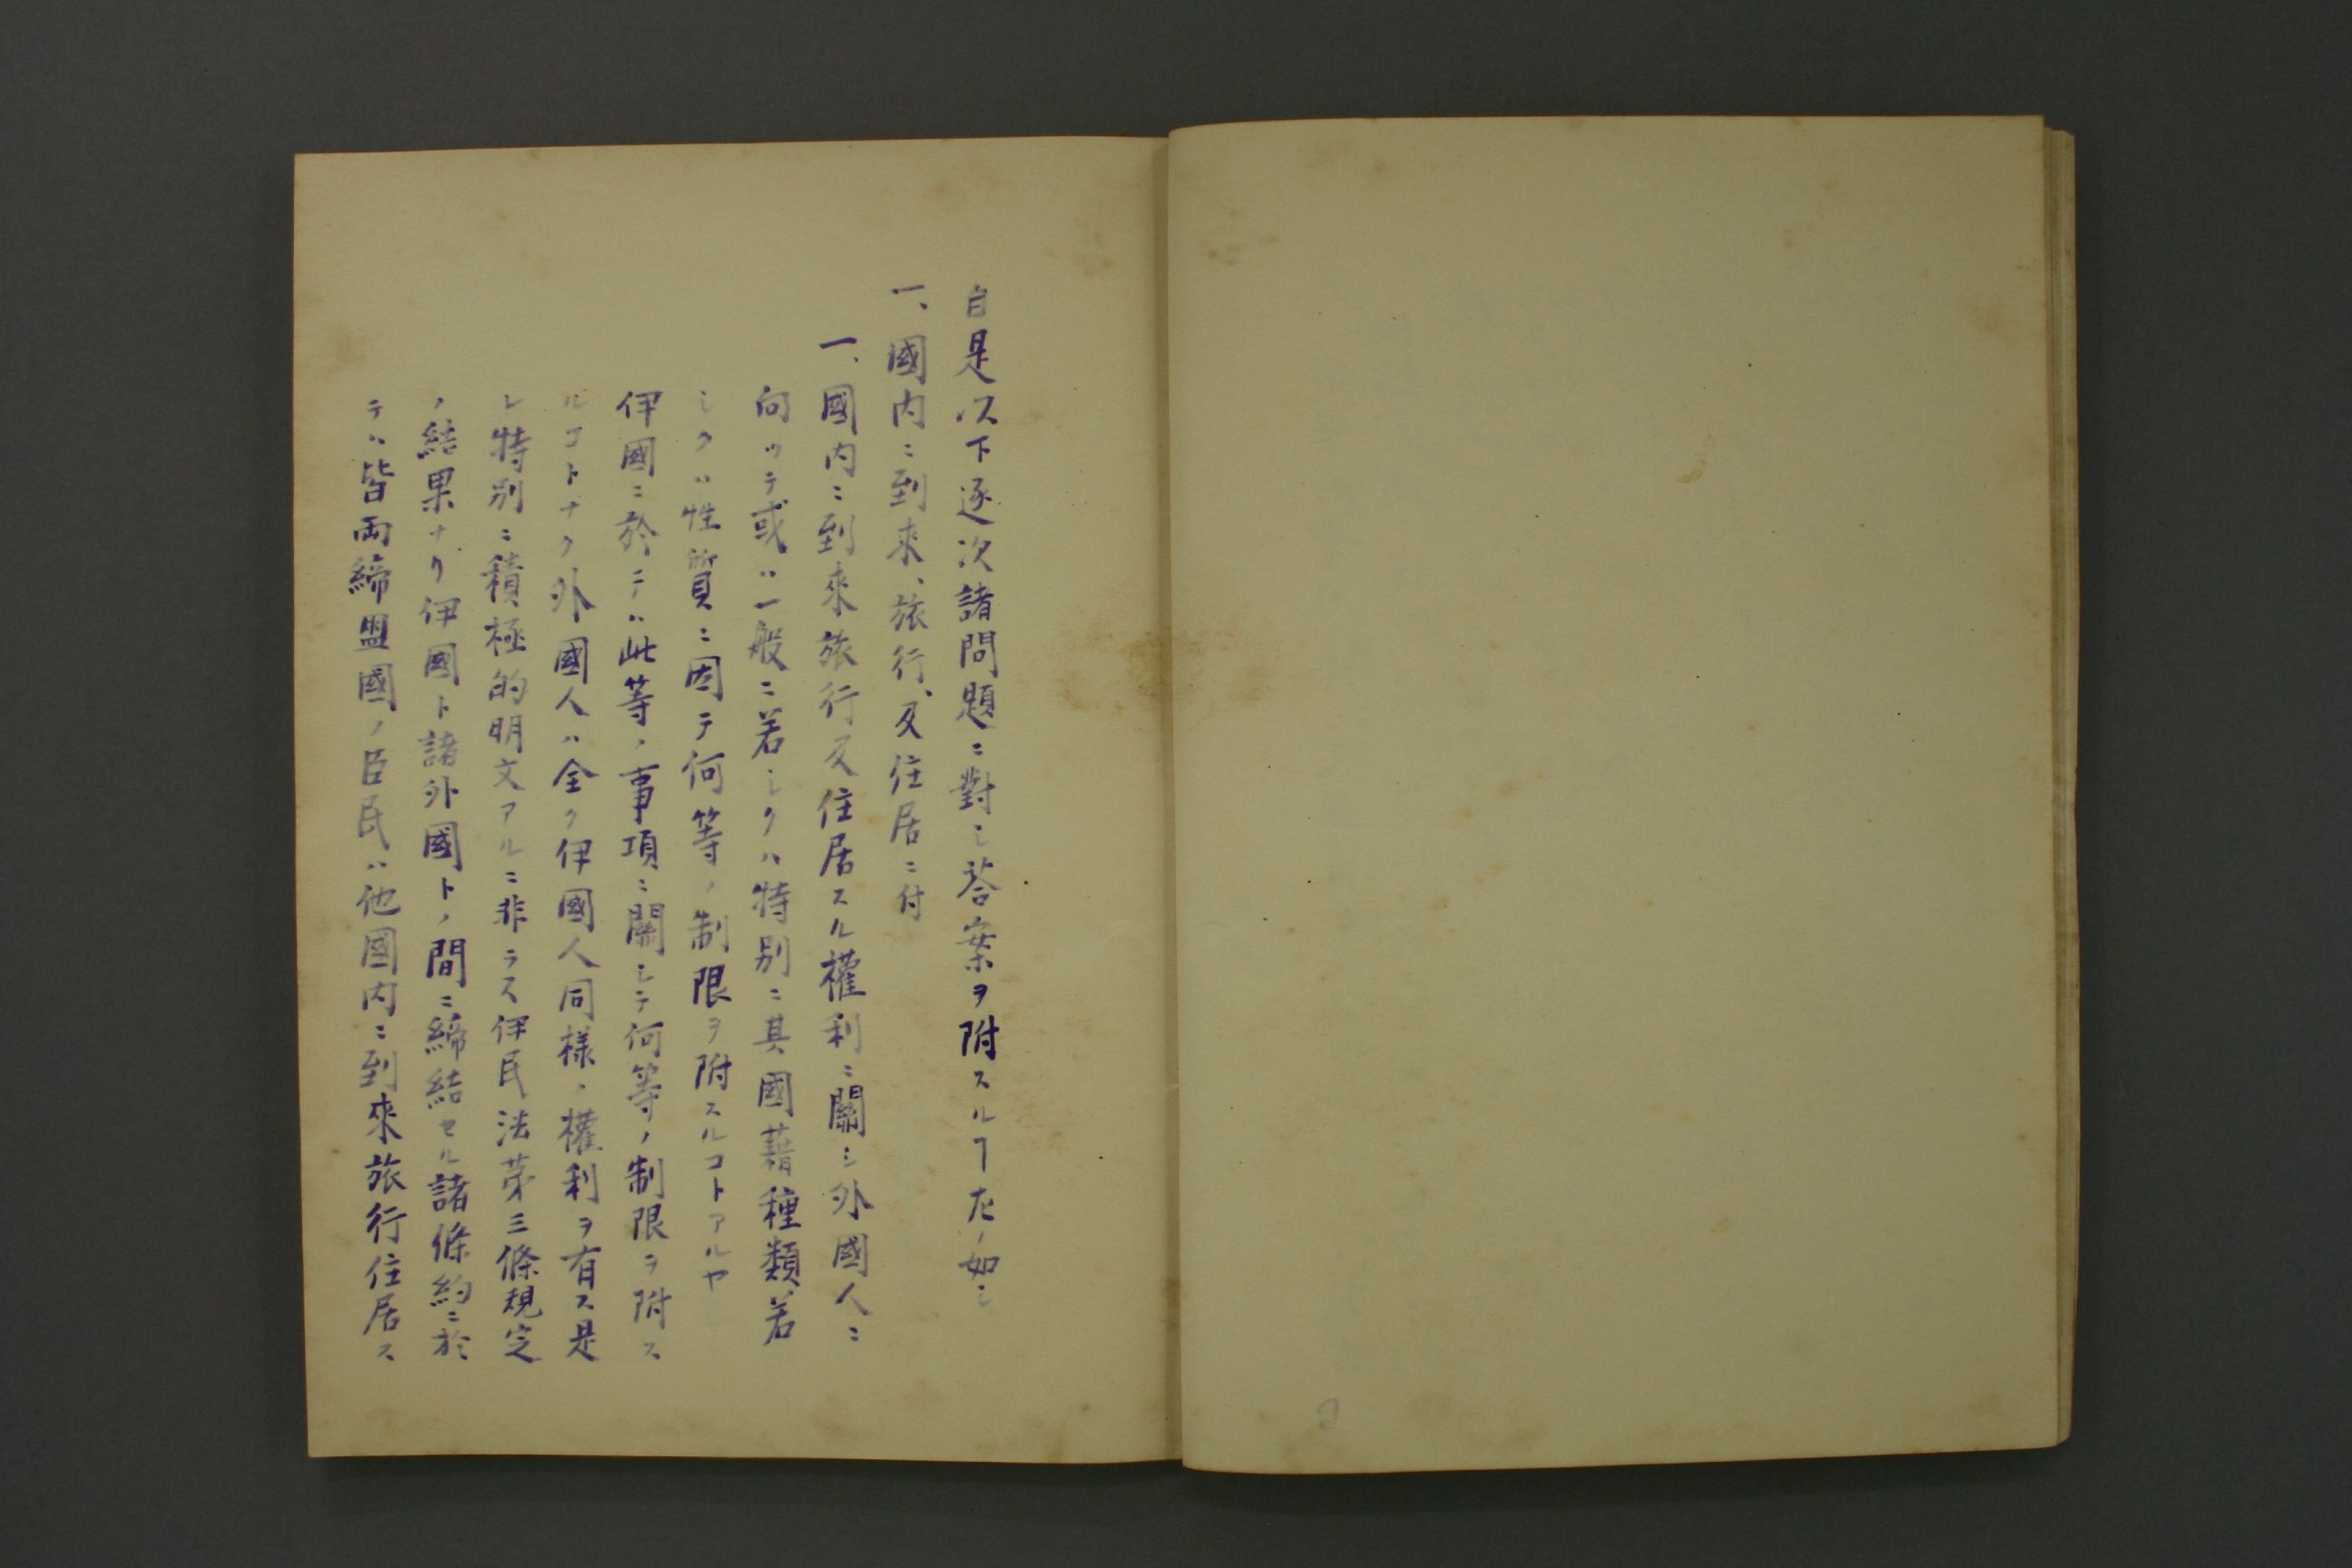 自是以下逐次諸問題ニ對シ荅案ヲ附スルヿ左ノ如シ
一、國内ニ到來、旅行、及住居ニ付
一、國内ニ到來旅行及住居スル權利ニ關シ外國人ニ
向ッテ或ハ一般ニ若シクハ特別ニ其國籍種類若
シクハ性質ニ因テ何等ノ制限ヲ附スルコトアルヤ
伊國ニ於テハ此等ノ事項ニ關シテ何等ノ制限ヲ附ス
ルコトナク外國人ハ全ク伊國人同様ノ權利ヲ有ス是
レ特別ニ積極的明文アルニ非ラス伊民法苐三條規定
ノ結果ナリ伊國ト諸外國トノ間ニ締結セル諸條約ニ於
テハ皆両締盟國ノ臣民ハ他國内ニ到來旅行住居ス